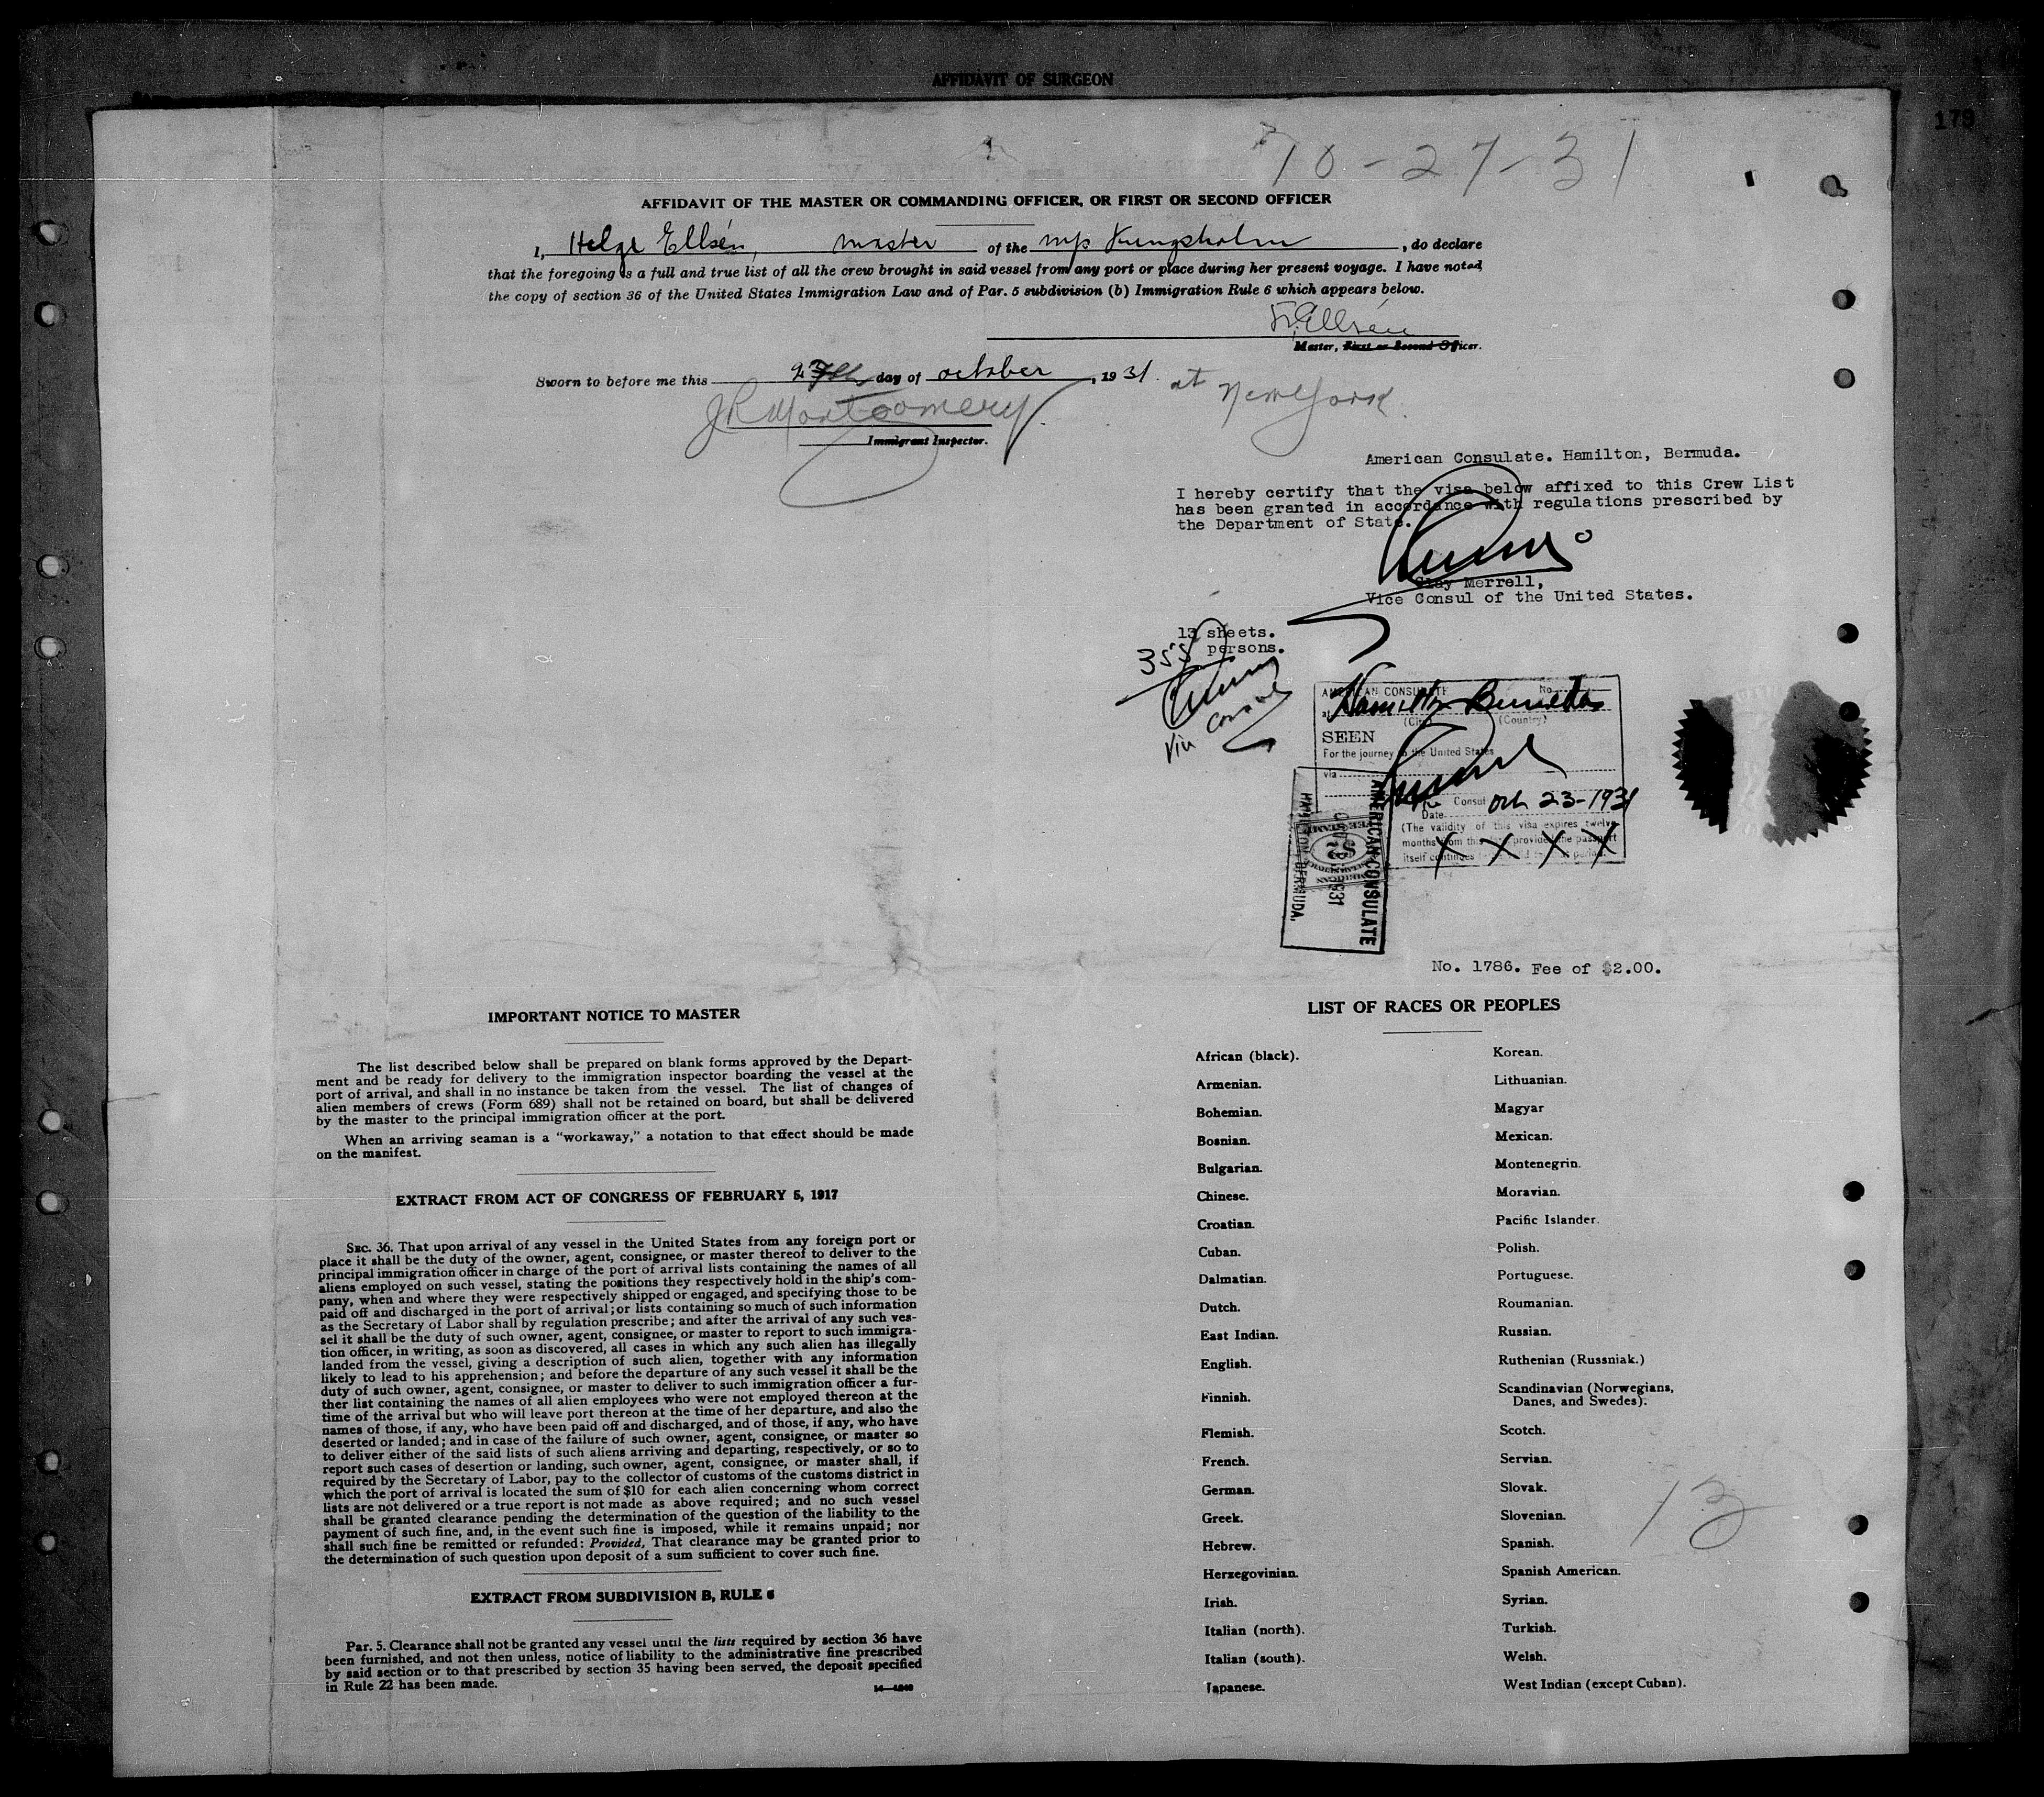 AFFIDAVIT OF SURGEON
179
10-27-31
AFFIDAVIT OF THE MASTER OR COMMANDING OFFICER, OR FIRST OR SECOND OFFICER
I, Helge Ellsén, master of the m/s Kungsholm, do declare
that the foregoing is a full and true list of all the crew brought in said vessel from any port or place during her present voyage. I have noted
the copy of section 36 of the United States Immigration Law and of Par. 5 subdivision (b) Immigration Rule 6 which appears below.
H. Ellsén
Master, First or Second Officer.
Sworn to before me this 27th day of october, 1931. at New York.
J R Montgomery
Immigrant Inspector.
American Consulate. Hamilton, Bermuda.
I hereby certify that the visa below affixed to this Crew List
has been granted in accordance with regulations prescribed by
the Department of State.
Clay Merrell,
Vice Consul of the United States.
13 sheets.
355 persons.
AMERICAN CONSULATE No.
at Hamilton Bermuda
(City) (Country)
SEEN
For the journey to the United States
via
Consul Oct 23-1931
Date
(The validity of this visa expires twelve
months from this date provided the passport
itself continues
X X X X
AMERICAN CONSULATE
1931
HAMILTON, BERMUDA.
$2
No. 1786. Fee of $2.00.
IMPORTANT NOTICE TO MASTER
The list described below shall be prepared on blank forms approved by the Depart-
ment and be ready for delivery to the immigration inspector boarding the vessel at the
port of arrival, and shall in no instance be taken from the vessel. The list of changes of
alien members of crews (Form 689) shall not be retained on board, but shall be delivered
by the master to the principal immigration officer at the port.
When an arriving seaman is a “workaway,” a notation to that effect should be made
on the manifest.
EXTRACT FROM ACT OF CONGRESS OF FEBRUARY 5, 1917
SEC. 36. That upon arrival of any vessel in the United States from any foreign port or
place it shall be the duty of the owner, agent, consignee, or master thereof to deliver to the
principal immigration officer in charge of the port of arrival lists containing the names of all
aliens employed on such vessel, stating the positions they respectively hold in the ship's com-
pany, when and where they were respectively shipped or engaged, and specifying those to be
paid off and discharged in the port of arrival; or lists containing so much of such information
as the Secretary of Labor shall by regulation prescribe; and after the arrival of any such ves-
sel it shall be the duty of such owner, agent, consignee, or master to report to such immigra-
tion officer, in writing, as soon as discovered, all cases in which any such alien has illegally
landed from the vessel, giving a description of such alien, together with any information
likely to lead to his apprehension; and before the departure of any such vessel it shall be the
duty of such owner, agent, consignee, or master to deliver to such immigration officer a fur-
ther list containing the names of all alien employees who were not employed thereon at the
time of the arrival but who will leave port thereon at the time of her departure, and also the
names of those, if any, who have been paid off and discharged, and of those, if any, who have
deserted or landed; and in case of the failure of such owner, agent, consignee, or master so
to deliver either of the said lists of such aliens arriving and departing, respectively, or so to
report such cases of desertion or landing, such owner, agent, consignee, or master shall, if
required by the Secretary of Labor, pay to the collector of customs of the customs district in
which the port of arrival is located the sum of $10 for each alien concerning whom correct
lists are not delivered or a true report is not made as above required; and no such vessel
shall be granted clearance pending the determination of the question of the liability to the
payment of such fine, and, in the event such fine is imposed, while it remains unpaid; nor
shall such fine be remitted or refunded: Provided, That clearance may be granted prior to
the determination of such question upon deposit of a sum sufficient to cover such fine.
EXTRACT FROM SUBDIVISION B, RULE 6
Par. 5. Clearance shall not be granted any vessel until the lists required by section 36 have
been furnished, and not then unless, notice of liability to the administrative fine prescribed
by said section or to that prescribed by section 35 having been served, the deposit specified
in Rule 22 has been made.
LIST OF RACES OR PEOPLES
African (black).
Armenian.
Bohemian.
Bosnian.
Bulgarian.
Chinese.
Croatian.
Cuban.
Dalmatian.
Dutch.
East Indian.
English.
Finnish.
Flemish.
French.
German.
Greek.
Hebrew.
Herzegovinian.
Irish.
Italian (north).
Italian (south).
Japanese.
Korean.
Lithuanian.
Magyar
Mexican.
Montenegrin.
Moravian.
Pacific Islander.
Polish.
Portuguese.
Roumanian.
Russian.
Ruthenian (Russniak.)
Scandinavian (Norwegians,
Danes, and Swedes).
Scotch.
Servian.
Slovak.
Slovenian.
Spanish.
Spanish American.
Syrian.
Turkish.
Welsh.
West Indian (except Cuban).
13